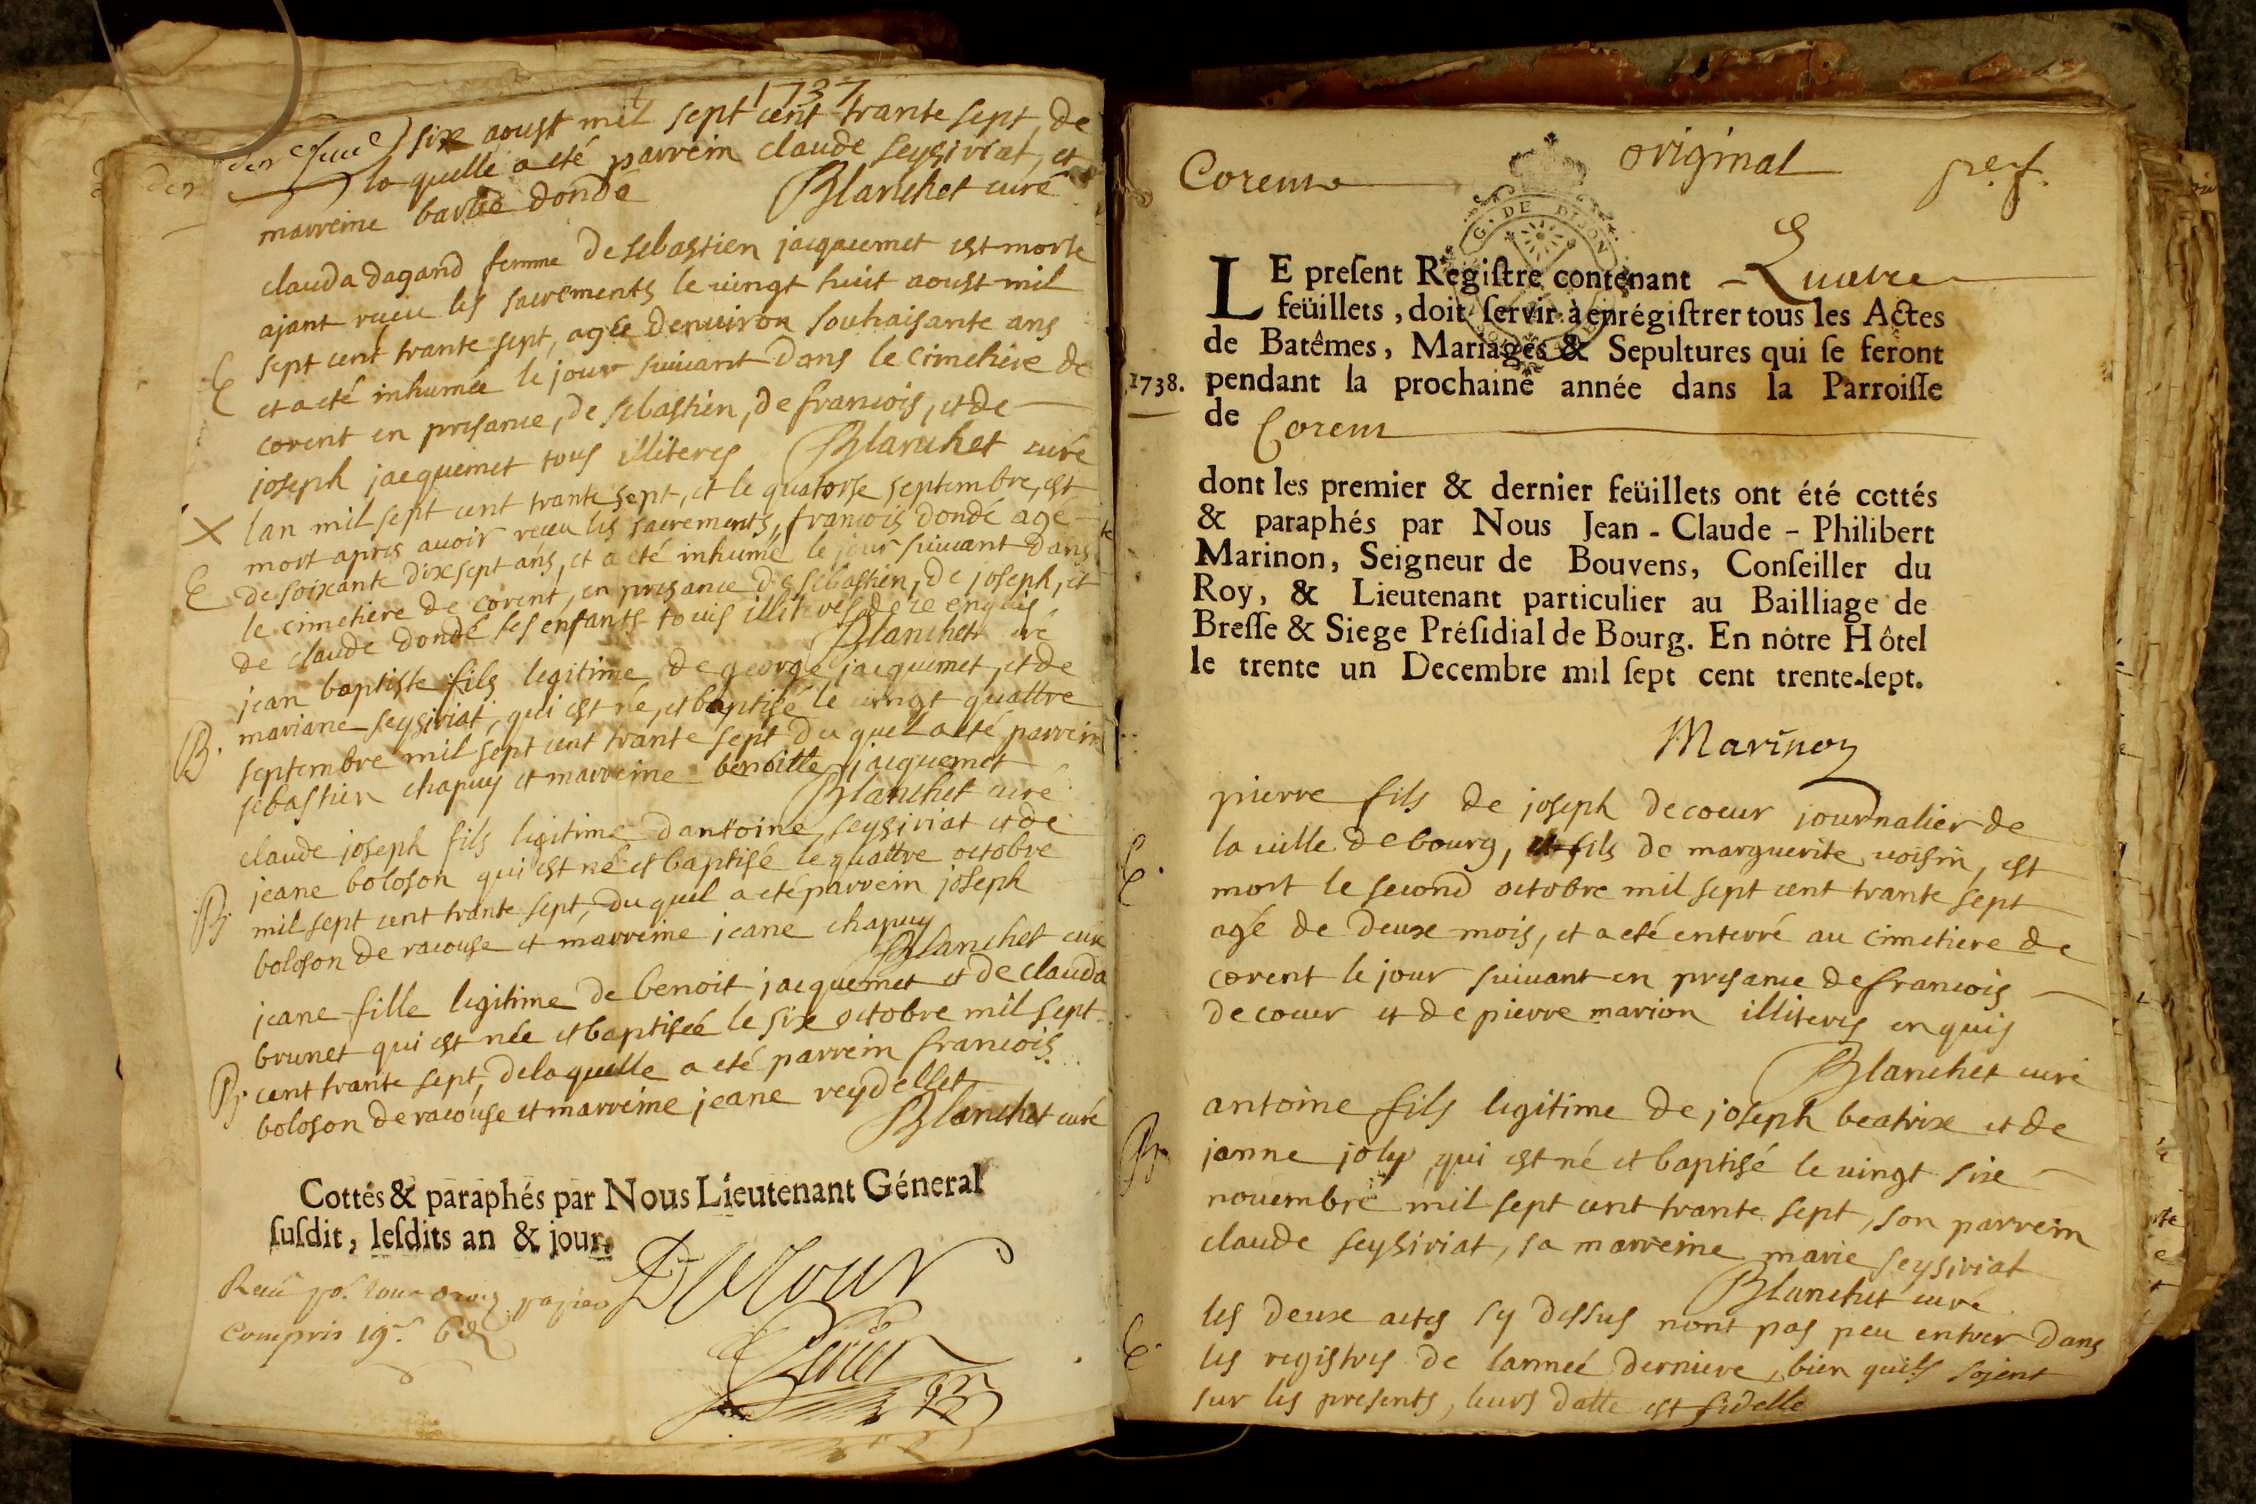 1737
six aoust mil sept cent trante sept, de
la quelle a eté parrein claude seysiriat, et
marreine barbe dondé Blanchet curé
clauda dagand femme de sebastien jacquemet est morte
ajant receu les sacrements le vingt huit aoust mil
sept cent trante sept, agée denuiron souhaisante ans
E et a eté inhumée le jour suiuant dans le cimetiere de
corent en presance, de sebastien, de francois, et de
joseph jacquemet tous illiteres Blanchet curé
X lan mil sept cent trante sept, et le quatorse septembre, est
mort apres auoir receu les sacrements, francois dondé agé
E de soixante dix sept ans, et a eté inhumé le jour suiuant dans
le cimetiere de corent, en presance de sebastien, de joseph, et
de claude dondé ses enfants tous illiteres de ce enquis
Blanchet curé
jean baptiste fils legitime de george jacquemet, et de
B. mariane seysiriat, qui est né, et baptisé le vingt quattre
septembre mil sept cent trante sept du quel a eté parrein
sebastien chapuy et marreine benoitte jacquemet
Blanchet curé
claude joseph fils legitime dantoine seysiriat et de
jeane boloson qui est né et baptisé le quattre octobre
B. mil sept cent trante sept, du quel a eté parrein joseph
boloson de racouse et marreine jeane chapuy
Blanchet curé
jeane fille legitime de benoit jacquemet et de clauda
brunet qui est née et baptiseé le six octobre mil sept
B. cent trante sept, de laquelle a eté parrein francois
boloson de racouse et marreine jeane reydellet
Blanchet curé
Cottés & paraphés par Nous Lieutenant Géneral
ſuſdit, leſdits an & jour.
compris 19s 6d
Corent original
G. DE DIJON
LE preſent Regiſtre contenant Quatre
feüillets, doit ſervir à enrégiſtrer tous les Actes
de Batêmes, Mariages & Sepultures qui ſe feront
1738. pendant la prochaine année dans la Parroiſſe
de Corent
dont les premier & dernier feüillets ont été cottés
& paraphés par Nous Jean-Claude-Philibert
Marinon, Seigneur de Bouvens, Conſeiller du
Roy, & Lieutenant particulier au Bailliage de
Breſſe & Siege Préſidial de Bourg. En nôtre Hôtel
le trente un Decembre mil ſept cent trente-ſept.
Marinon
pierre fils de joseph decoeur journalier de
E. la uille de bourg, et fils de marguerite uoisin, est
mort le second octobre mil sept cent trante sept
agé de deux mois, et a eté enterré au cimetiere de
corent le jour suiuant en presance de francois
decoeur et de pierre marion illiteres enquis
Blanchet curé
antoine fils legitime de joseph beatrix et de
B. janne joly, qui est né et baptisé le uingt six
nouembre mil sept cent trante sept, son parrein
claude seysiriat, sa marreine marie seysiriat
Blanchet curé
E. les deux actes sy dessus nont pas peu entrer dans
les registres de lanneé derniere, bien quils sojent
sur les presents, leurs datte est fidelle